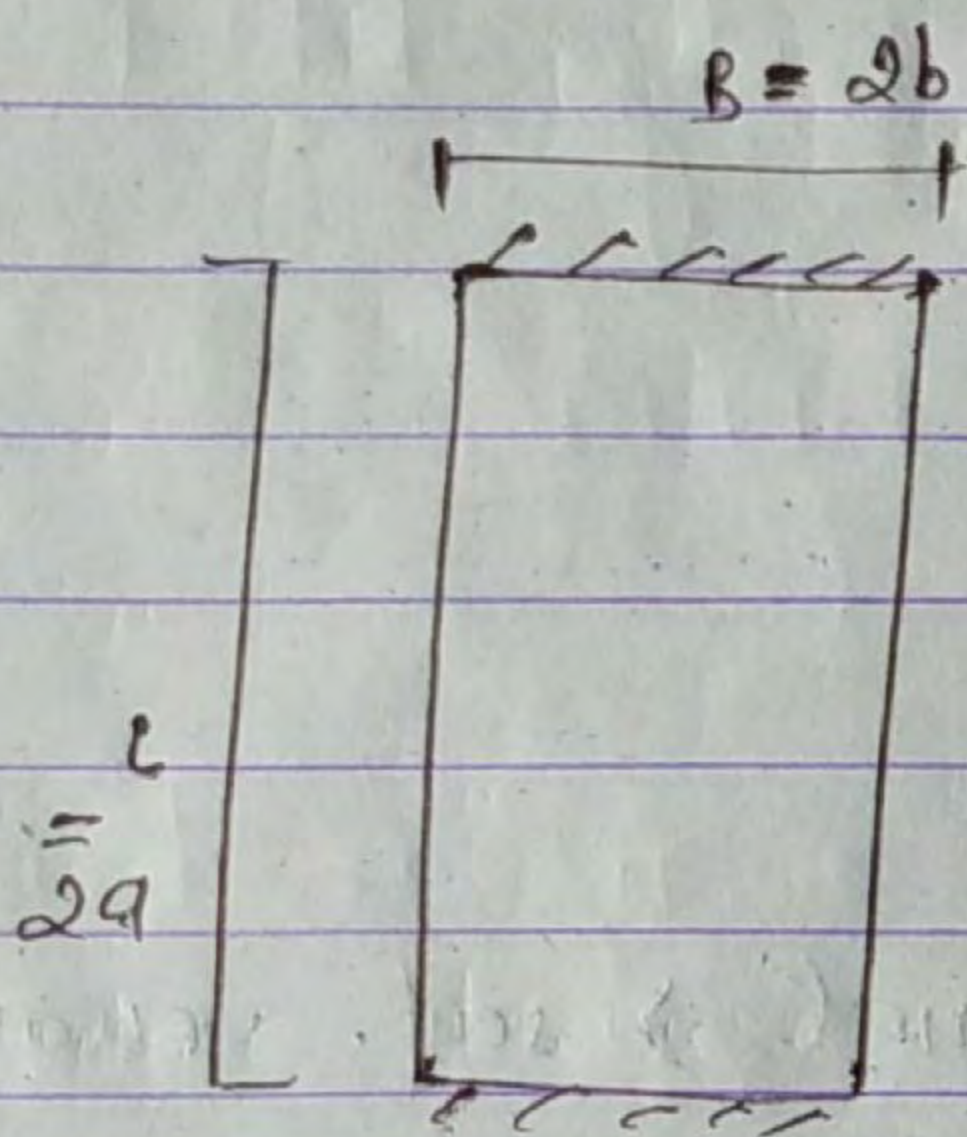 B = 2b
L
=
2a